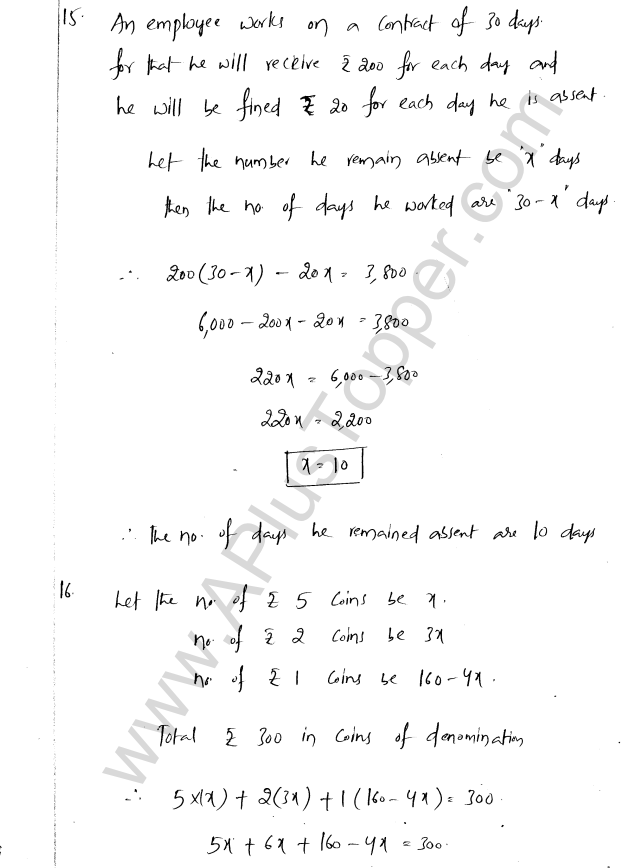 15. An employee works on a contract of 30 days.
for that he will receive ₹ 200 for each day and
he will be fined ₹ 20 for each day he is absent.
Let the number he remain absent be "x" days
then the no. of days he worked are "30-x" days.
∴ 200(30-x) - 20x = 3,800.
6,000 - 200x - 20x = 3,800
220x = 6,000 - 3,800
220x = 2,200
x = 10
∴ The no. of days he remained absent are 10 days
16. Let the no. of ₹ 5 Coins be x.
no. of ₹ 2 Coins be 3x
no. of ₹ 1 Coins be 160-4x.
Total ₹ 300 in Coins of denomination
∴ 5×(x) + 2(3x) + 1(160-4x) = 300.
5x + 6x + 160 - 4x = 300.
www.APlusTopper.com